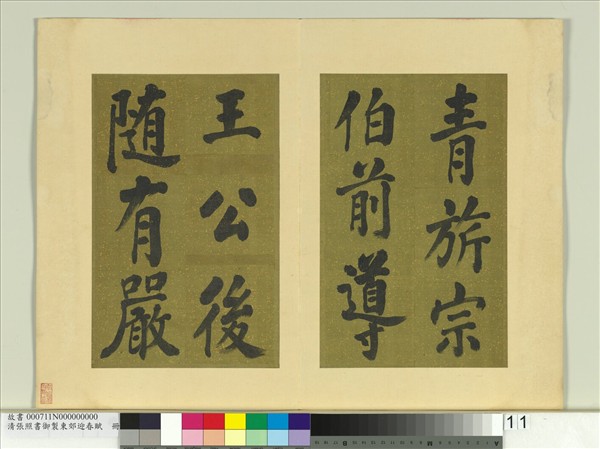 青旂宗
伯前導
王公後
随有嚴
故書 000711N000000000
清張照書御製東郊迎春賦 冊
11